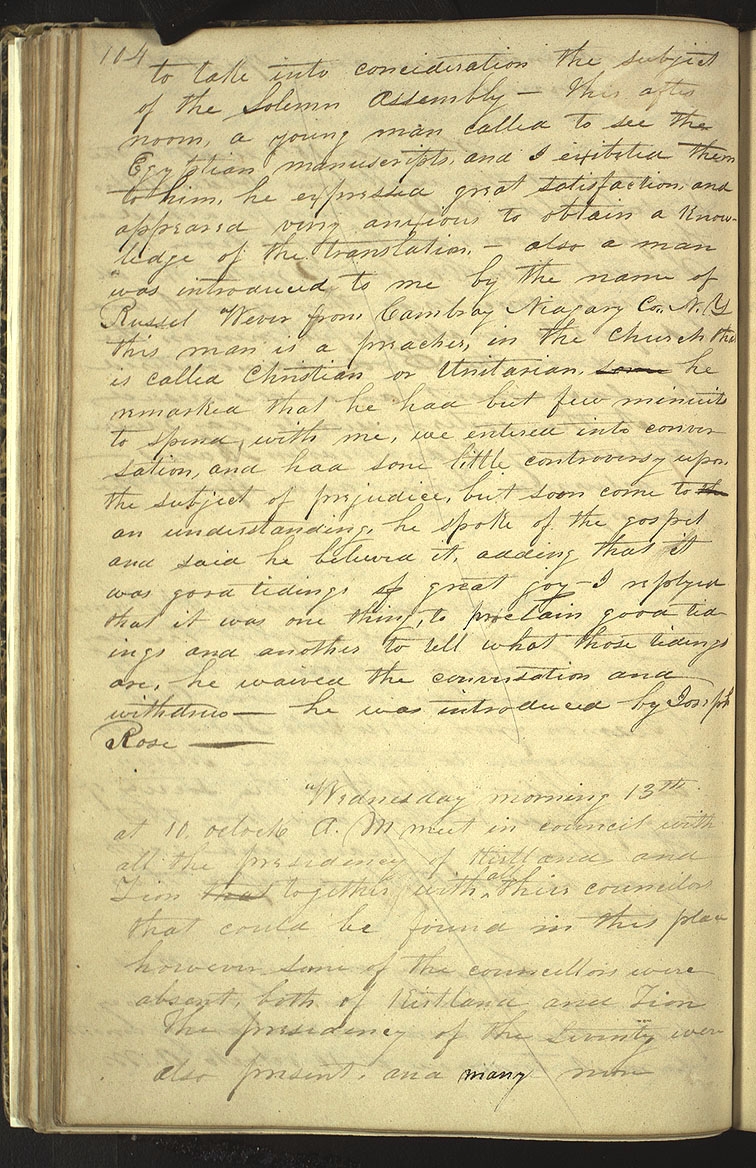 104
to take into concideration the subject
of the Solemn Assembly — This after
noon, a young man called to see the
Egyptian manuscripts, and I exibited them
to him, he expressed great satisfaction, and
appeared very anxious to obtain a know-
ledge of the translation. — also a man
was introduced to me by the name of
Russel Wever from Cambray Niagary Co. N. Y
this man is a preacher, in the church that
is called Christian or Unitarian, he
remarked that he had but few minuits
to spend, with me, we entered into conver
sation, and had some little controversy upon
the subject of prejudice, but soon come to
an understanding, he spoke of the gospel
and said he believed it, adding that it
was good tidings of great joy — I replyed
that it was one thing, to proclaim good tid
ings and another to tell what those tidings
are, he waived the conversation and
withdrew — he was introduced by Joseph
Rose —
"Wednesday morning 13th
at 10. oclock A. M meet in council with
all the presidency of Kirtland and
Zion that together with all their councilors
that could be found in this place
however some of the councellors were
absent, both of Kirtland and Zion
The presidency of the Seventy were
also present, and many more